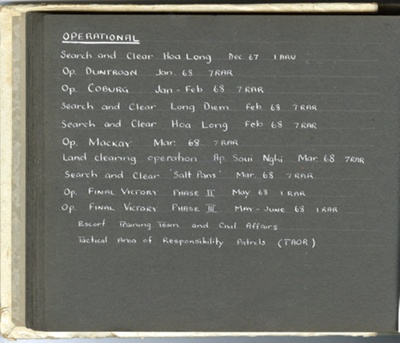 OPERATIONAL
Search and Clear Hoa Long Dec. 67 1 ARU
Op. DUNTROON Jan. 68 7RAR
Op. COBURG Jan - Feb 68 7RAR
Search and Clear Long Diem Feb. 68 7RAR
Search and Clear Hoa Long Feb 68 7RAR
Op. MACKAY Mar. 68 7RAR
Land clearing operation Ap. Soui Nghi Mar. 68 7RAR
Search and Clear 'Salt Pans' Mar. 68 7RAR
Op. FINAL VICTORY PHASE II May 68 1 RAR
Op. FINAL VICTORY PHASE III May - June 68 1 RAR
Escort Training Team and Civil Affairs
Tactical Area of Responsibility Patrols (TAOR)